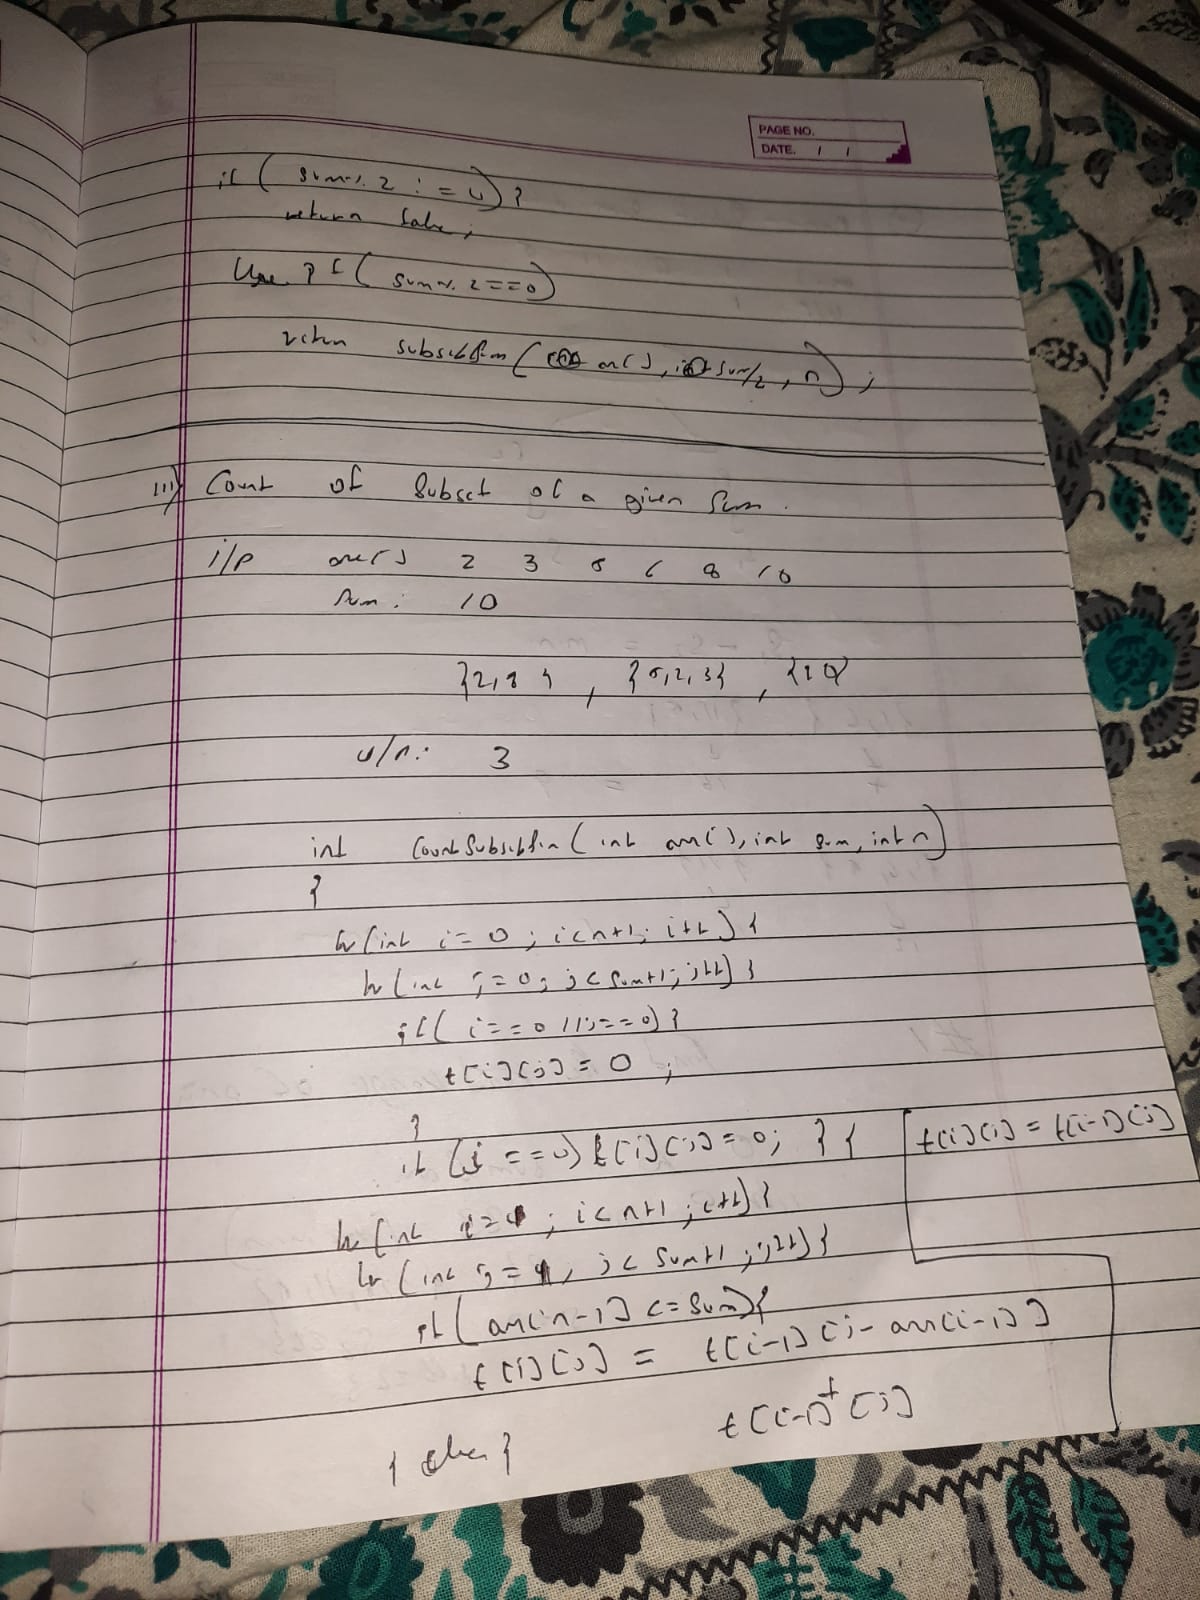 PAGE NO.
DATE. / /
if ( sum % 2 != 0) {
return false;
else if ( sum % 2 == 0)
return subsetSum ( arr[], sum/2 , n) ;
III) Count of Subset of a given Sum.
i/p arr[] 2 3 5 6 8 10
Sum : 10
{2,8} , {5,2,3} , {10}
o/p: 3
int CountSubsetSum ( int arr[], int sum, int n)
{
for (int i = 0 ; i < n+1; i++) {
for (int j = 0; j < sum+1; j++) {
if ( i == 0 || j == 0) {
t[i][j] = 0 ;
}
if (j == 0) t[i][j] = 0; } }
t[i][j] = t[i-1][j]
for (int i = 1 ; i < n+1 ; i++) {
for (int j = 1, j < sum+1 ; j++) {
if ( arr[n-1] <= sum) {
t[i][j] = t[i-1][j - arr[i-1]]
+
t[i-1][j]
} else {